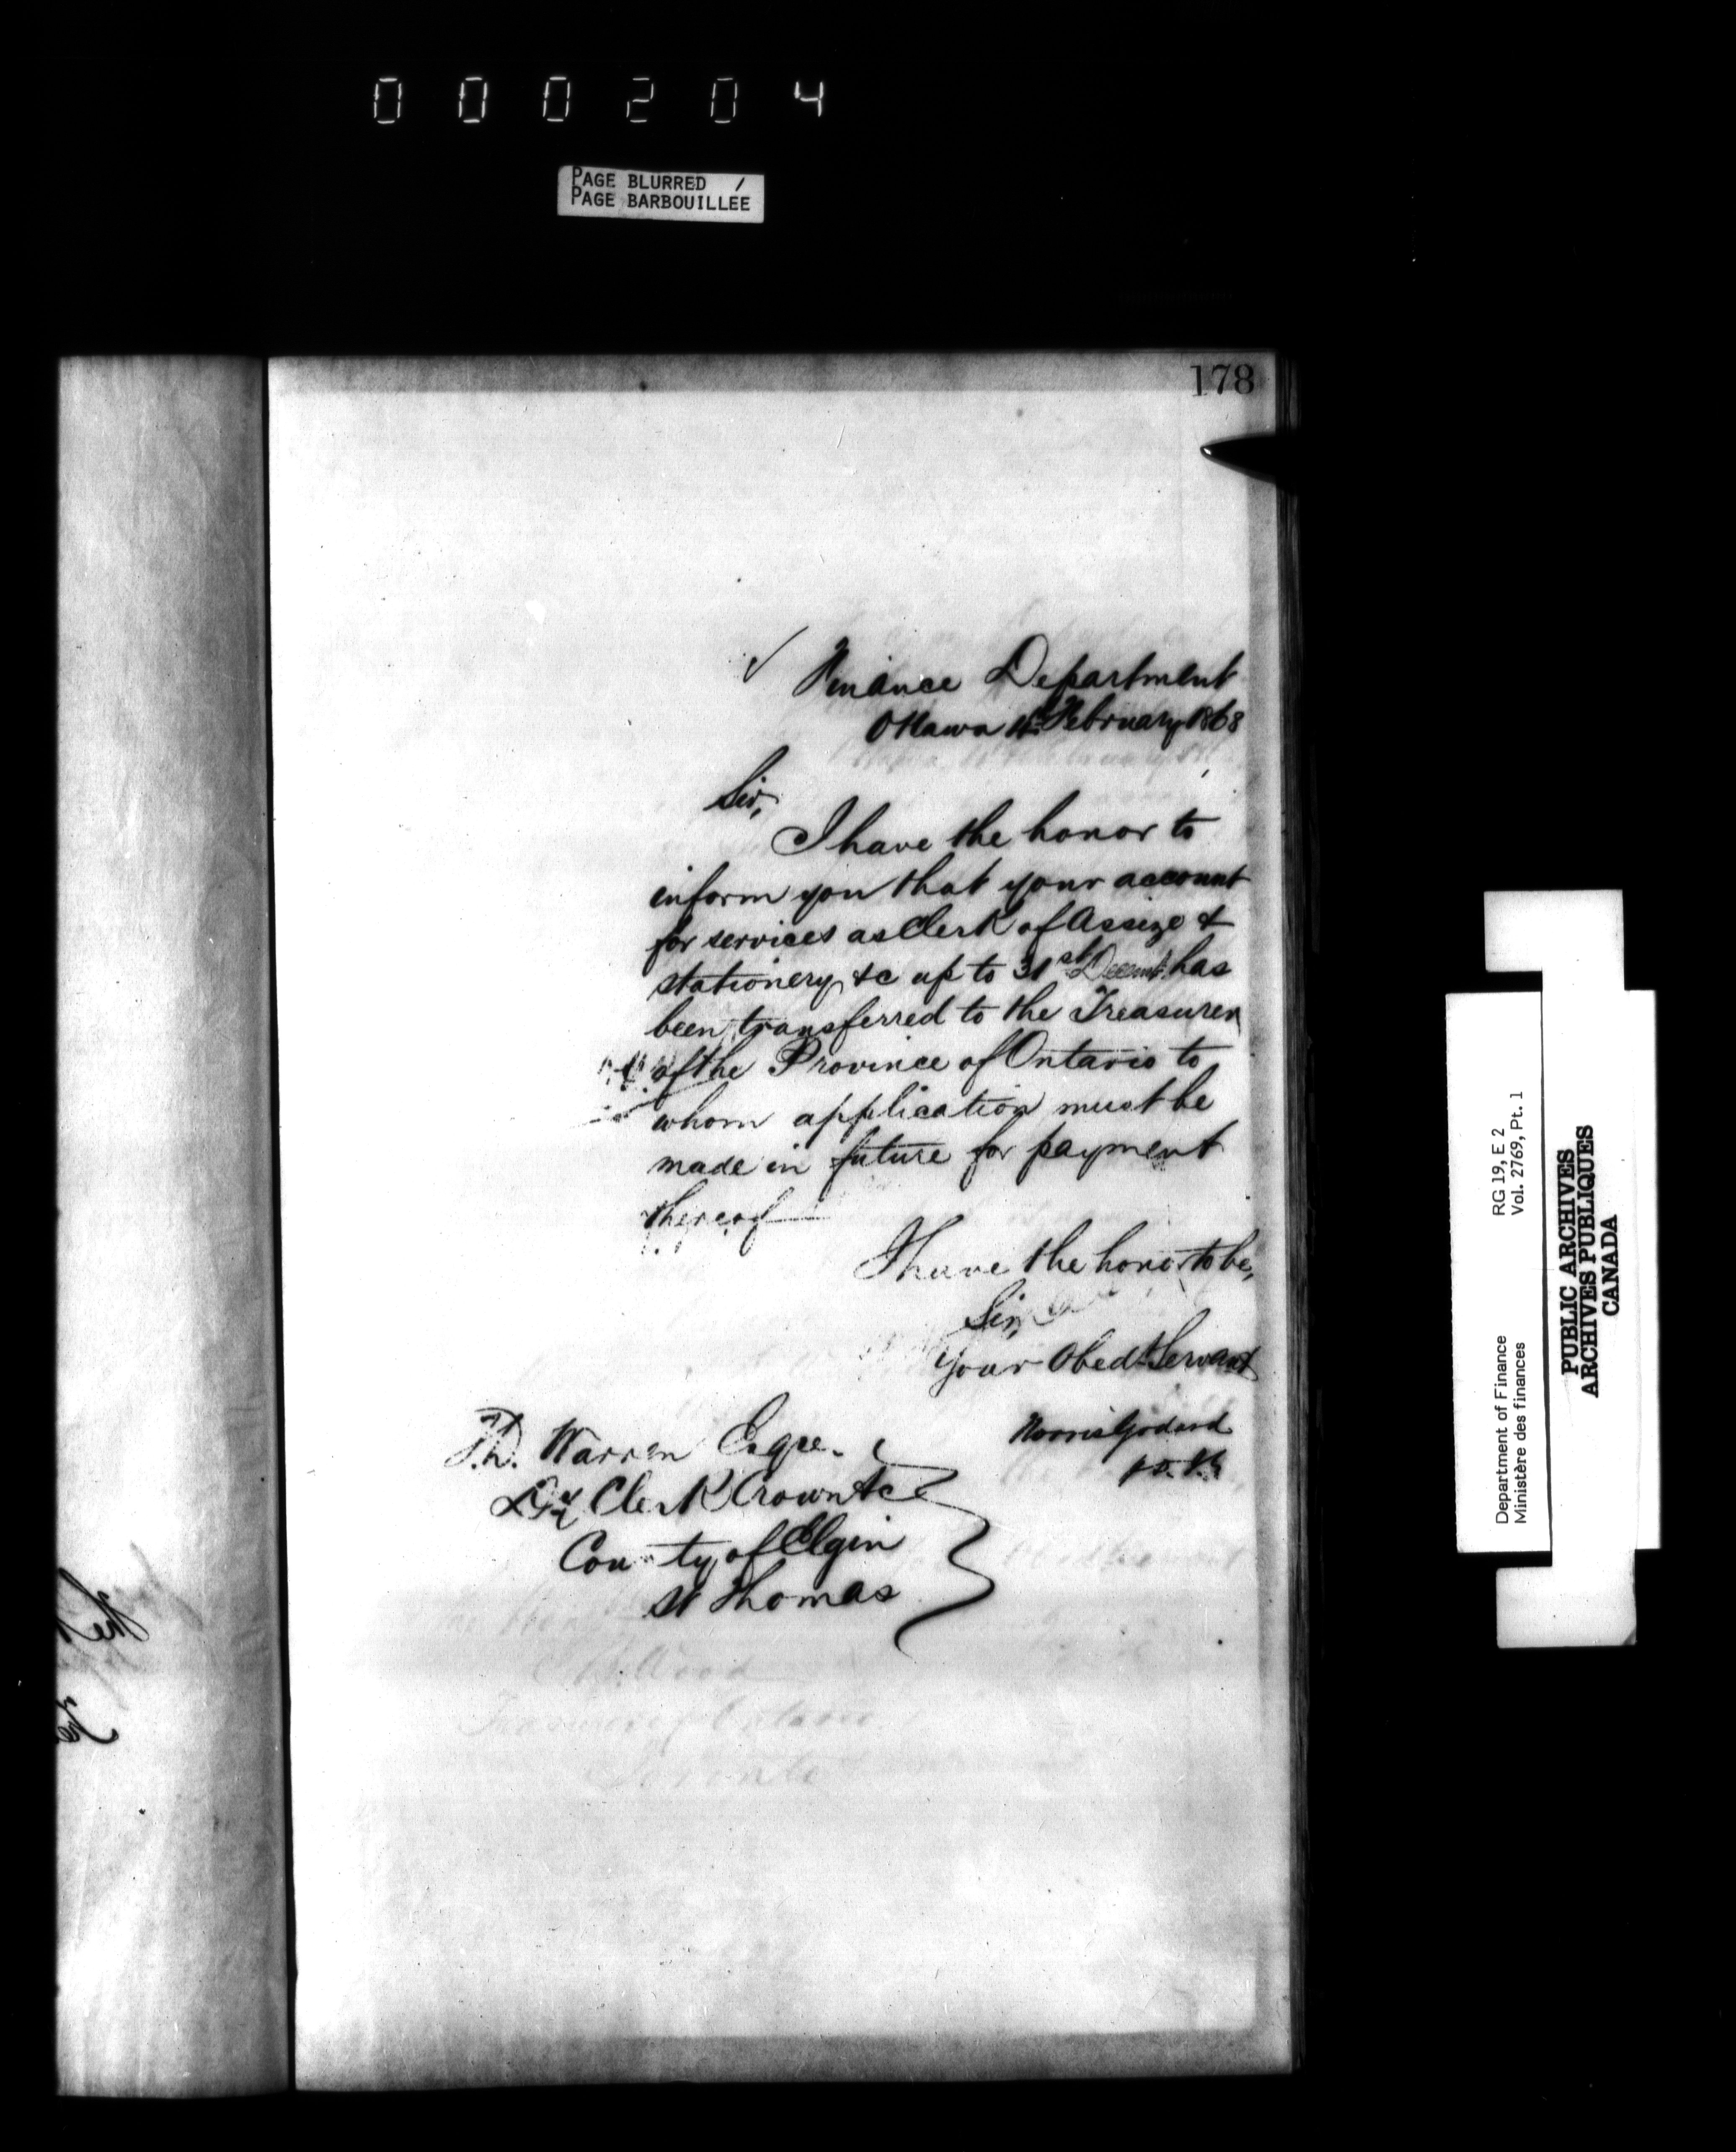 000204
PAGE BLURRED /
PAGE BARBOUILLEE
178
Finance Department
Ottawa February 1868
Sir,
I have the honor to
inform you that your account
for services as Clerk of Assize &
stationery &c up to 31st Decemb. has
been transferred to the Treasurer
of the Province of Ontario to
whom application must be
made in future for payment
thereof
I have the honor to be,
Sir,
Your Obedt Servant
Warren Esqre.
Dy Clerk Crown &c
County of Elgin
St Thomas
Department of Finance RG 19, E 2
Ministère des finances Vol. 2769, Pt. 1
PUBLIC ARCHIVES
ARCHIVES PUBLIQUES
CANADA